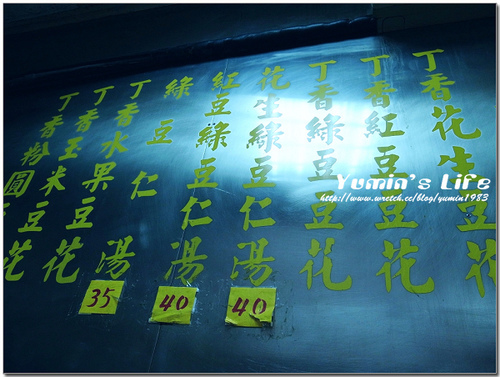 丁香花生豆花
丁香紅豆豆花
丁香綠豆豆花
花生綠豆仁湯
40
紅豆綠豆仁湯
40
綠豆仁湯
35
丁香水果豆花
丁香玉米豆花
丁香粉圓
Yumin's Life
http://www.wretch.cc/blog/yumin1983